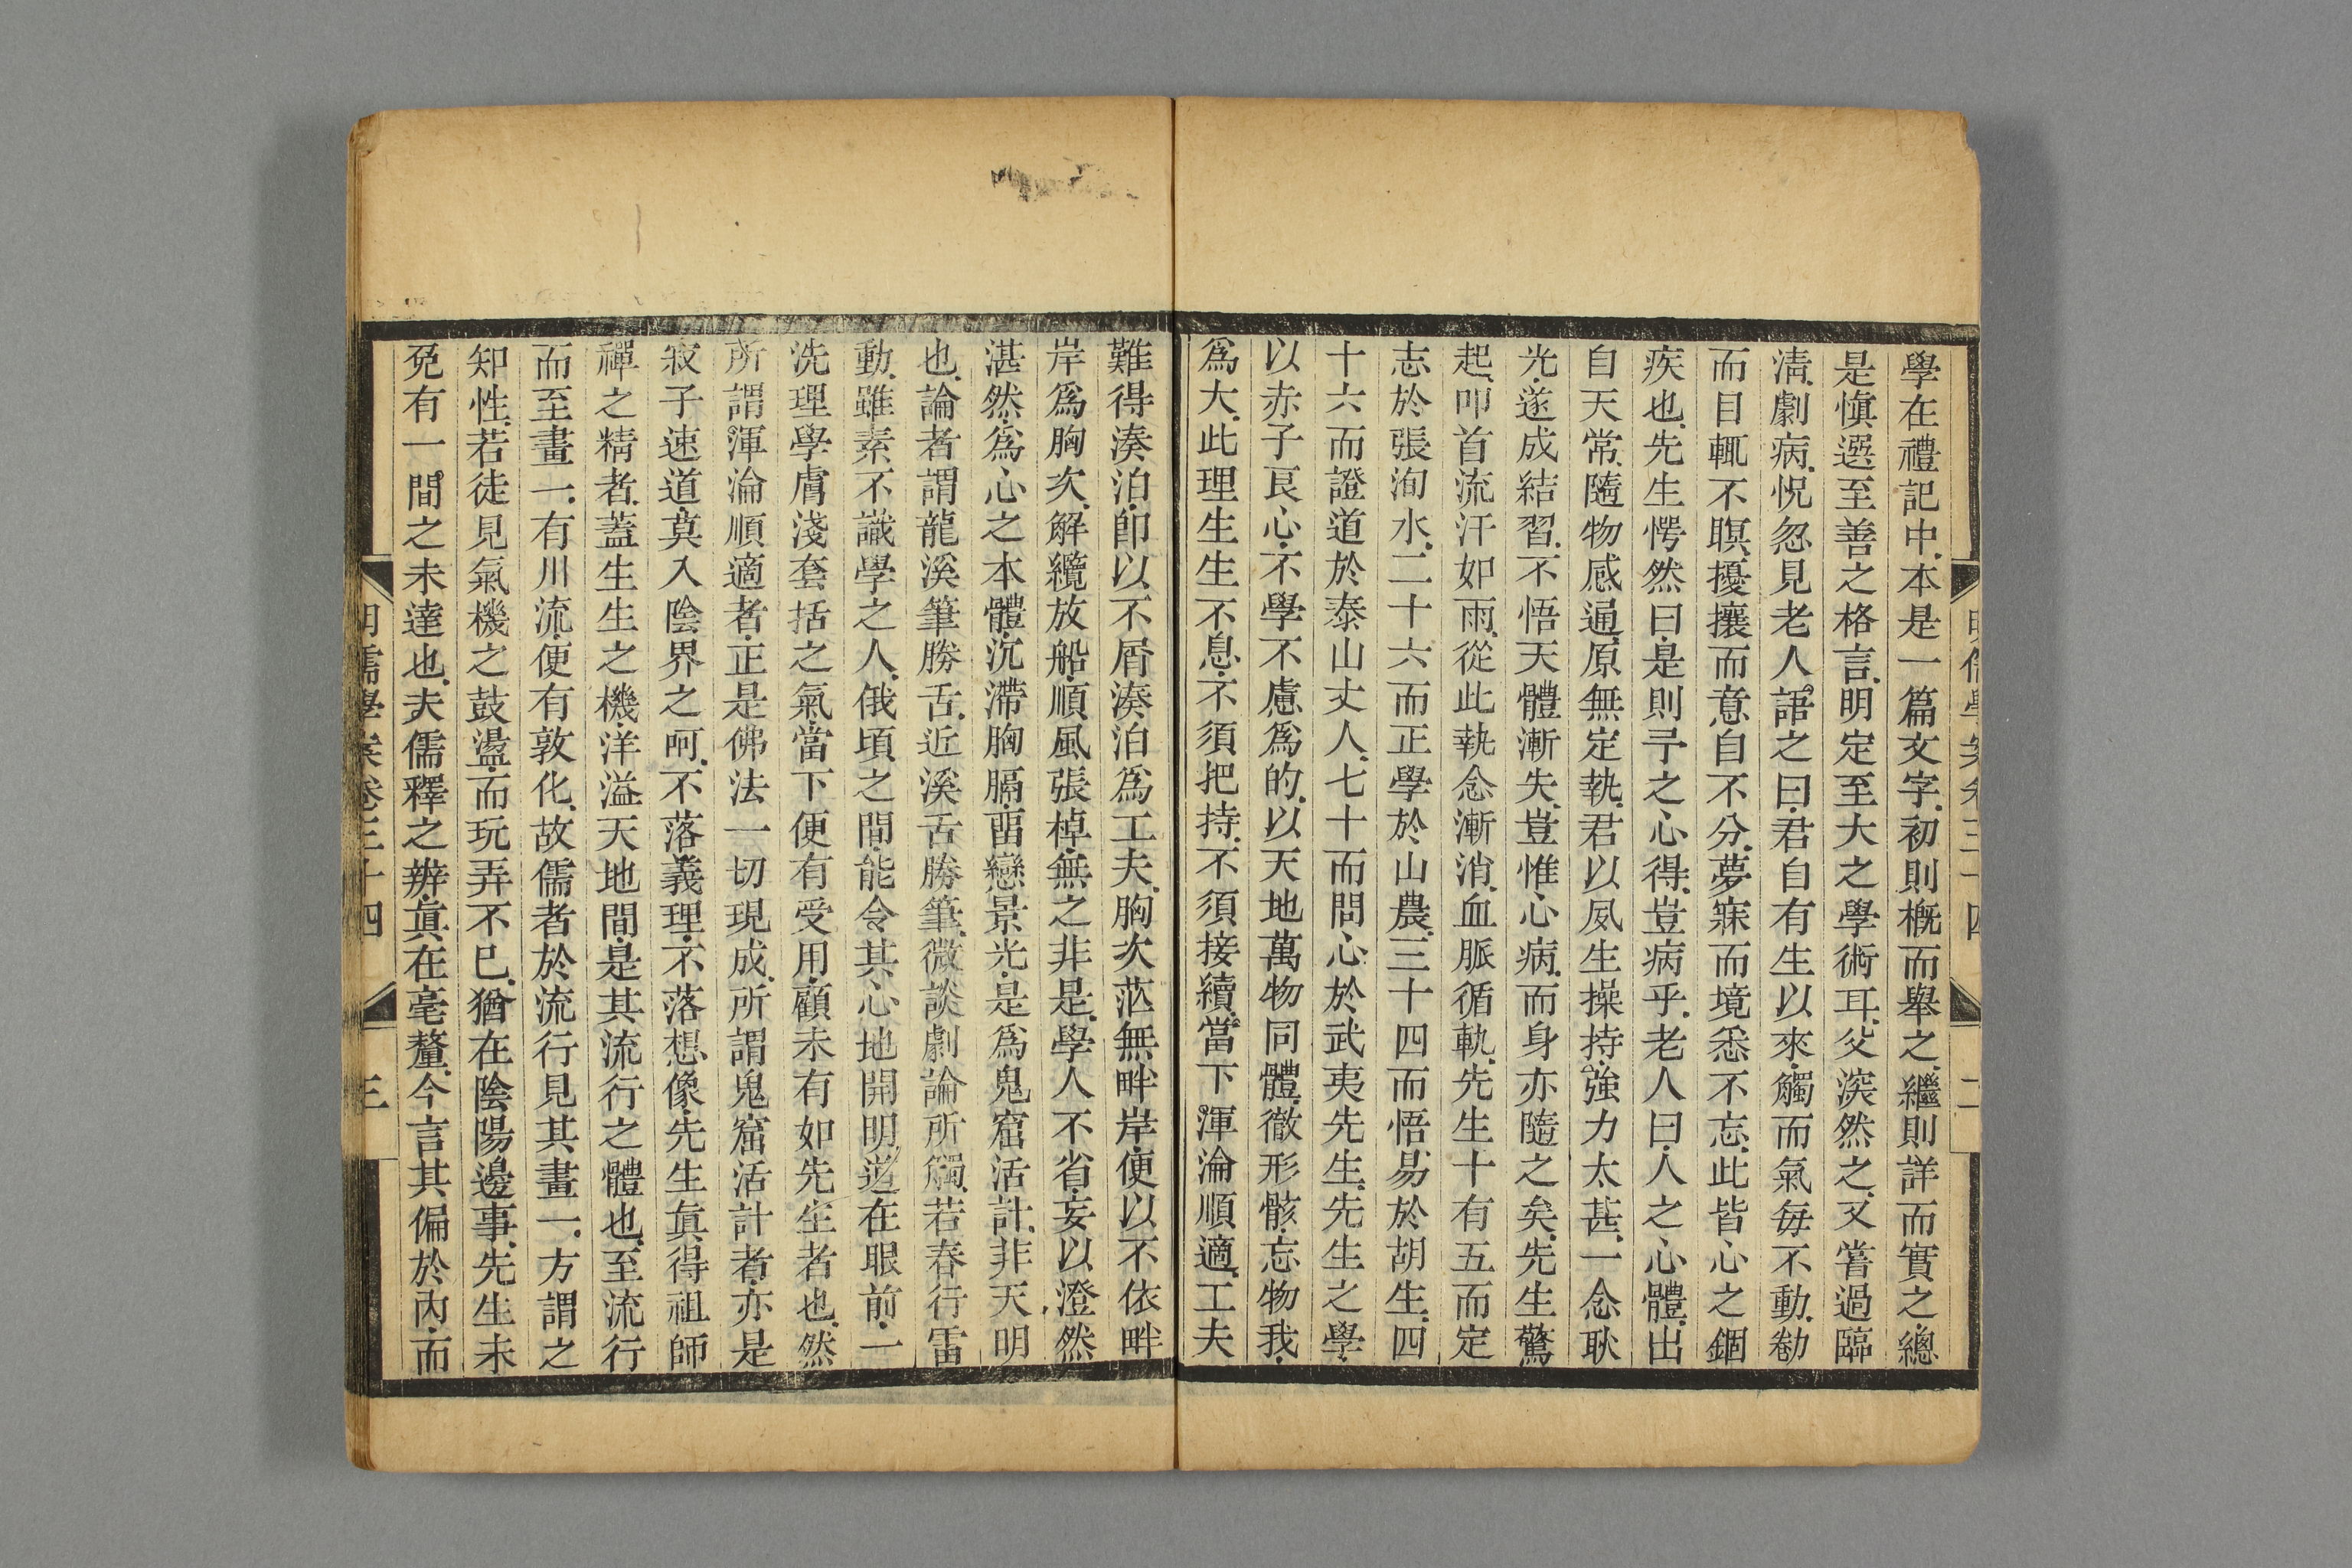 學在禮記中本是一篇文字初則槪而舉之繼則詳而實之總
是愼選至善之格言明定至大之學術耳父深然之又嘗過臨
淸劇病怳忽見老人語之曰君自有生以來觸而氣每不動勌
而目輒不瞑擾攘而意自不分夢寐而境悉不忘此皆心之錮
疾也先生愕然曰是則予之心得豈病乎老人曰人之心體出
自天常隨物感通原無定執君以夙生操持強力太甚一念耿
光遂成結習不悟天體漸失豈惟心病而身亦隨之矣先生驚
起叩首流汗如雨從此執念漸消血脈循軌先生十有五而定
志於張洵水二十六而正學於山農三十四而悟易於胡生四
十六而證道於泰山丈人七十而問心於武夷先生先生之學
以赤子良心不學不慮爲的以天地萬物同體徹形骸忘物我
爲大此理生生不息不須把持不須接續當下渾淪順適工夫
難得湊泊卽以不屑湊泊爲工夫胸次茫無畔岸便以不依畔
岸爲胸次解纜放船順風張棹無之非是學人不省妄以澄然
湛然爲心之本體沉滯胸膈畱戀景光是爲鬼窟活計非天明
也論者謂龍溪筆勝舌近溪舌勝筆微談劇論所觸若春行雷
動雖素不識學之人俄頃之間能令其心地開明道在眼前一
洗理學膚淺套括之氣當下便有受用顧未有如先生者也然
所謂渾淪順適者正是佛法一切現成所謂鬼窟活計者亦是
寂子速道莫入陰界之呵不落義理不落想像先生眞得祖師
禪之精者蓋生生之機洋溢天地間是其流行之體也至流行
而至畫一有川流便有敦化故儒者於流行見其畫一方謂之
知性若徒見氣機之鼓盪而玩弄不已猶在陰陽邊事先生未
免有一間之未達也夫儒釋之辨眞在毫釐今言其偏於內而
明儒學案卷三十四 三